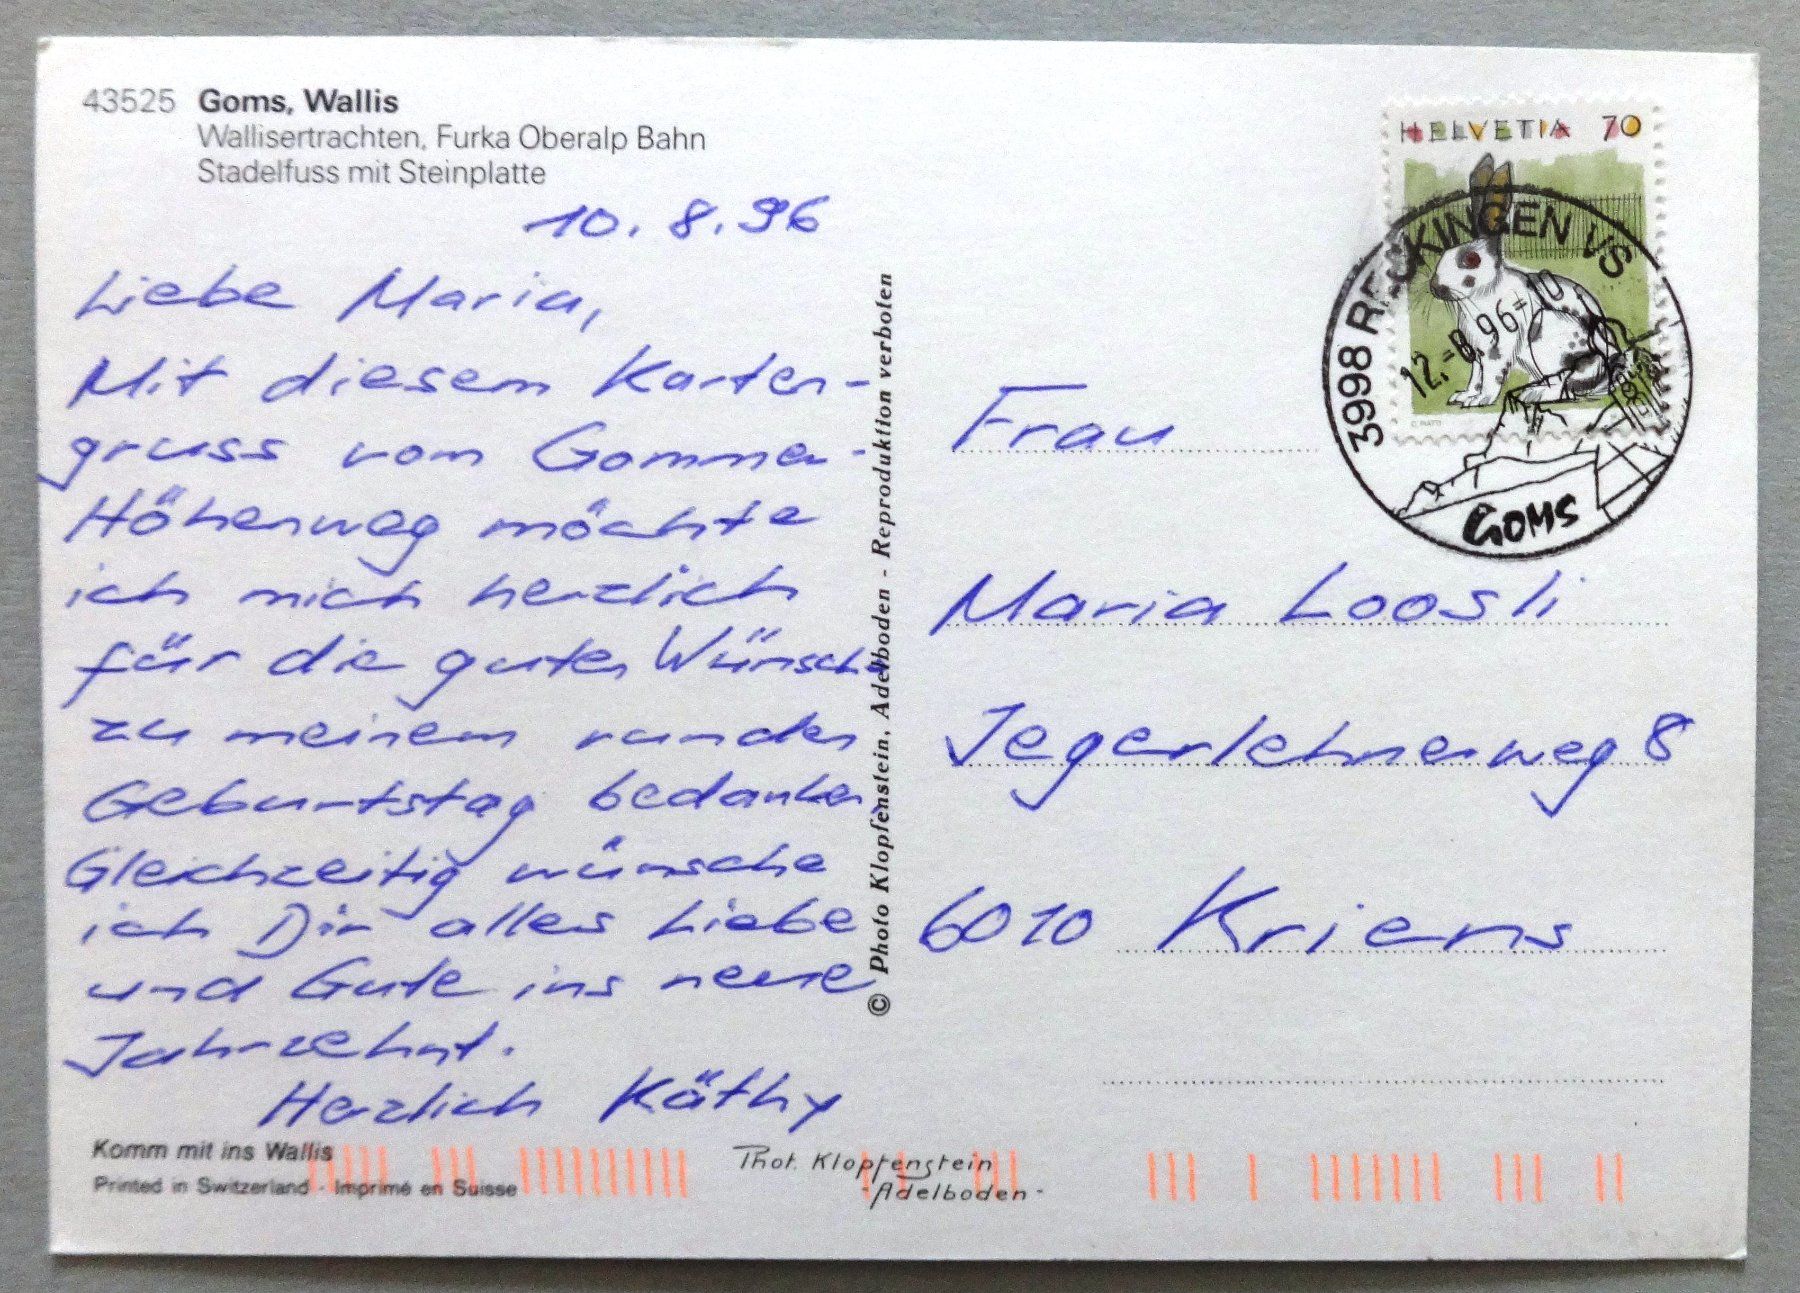 43525 Goms, Wallis
Wallisertrachten, Furka Oberalp Bahn
Stadelfuss mit Steinplatte
10. 8. 96
Liebe Maria,
Mit diesem Karten-
gruss vom Gommer-
Höhenweg möchte
ich mich herzlich
für die guten Wünsche
zu meinem runden
Geburtstag bedanken.
Gleichzeitig wünsche
ich Dir alles Liebe
und Gute ins neue
Jahrzehnt.
Herzlich Käthy
Komm mit ins Wallis
Printed in Switzerland - Imprimé en Suisse
Phot. Klopfenstein
-Adelboden-
© Photo Klopfenstein, Adelboden - Reproduktion verboten
HELVETIA 70
3998 RECKINGEN VS
12.-8.96-10
GOMS
Frau
Maria Loosli
Jegerlehnerweg 8
6010 Kriens